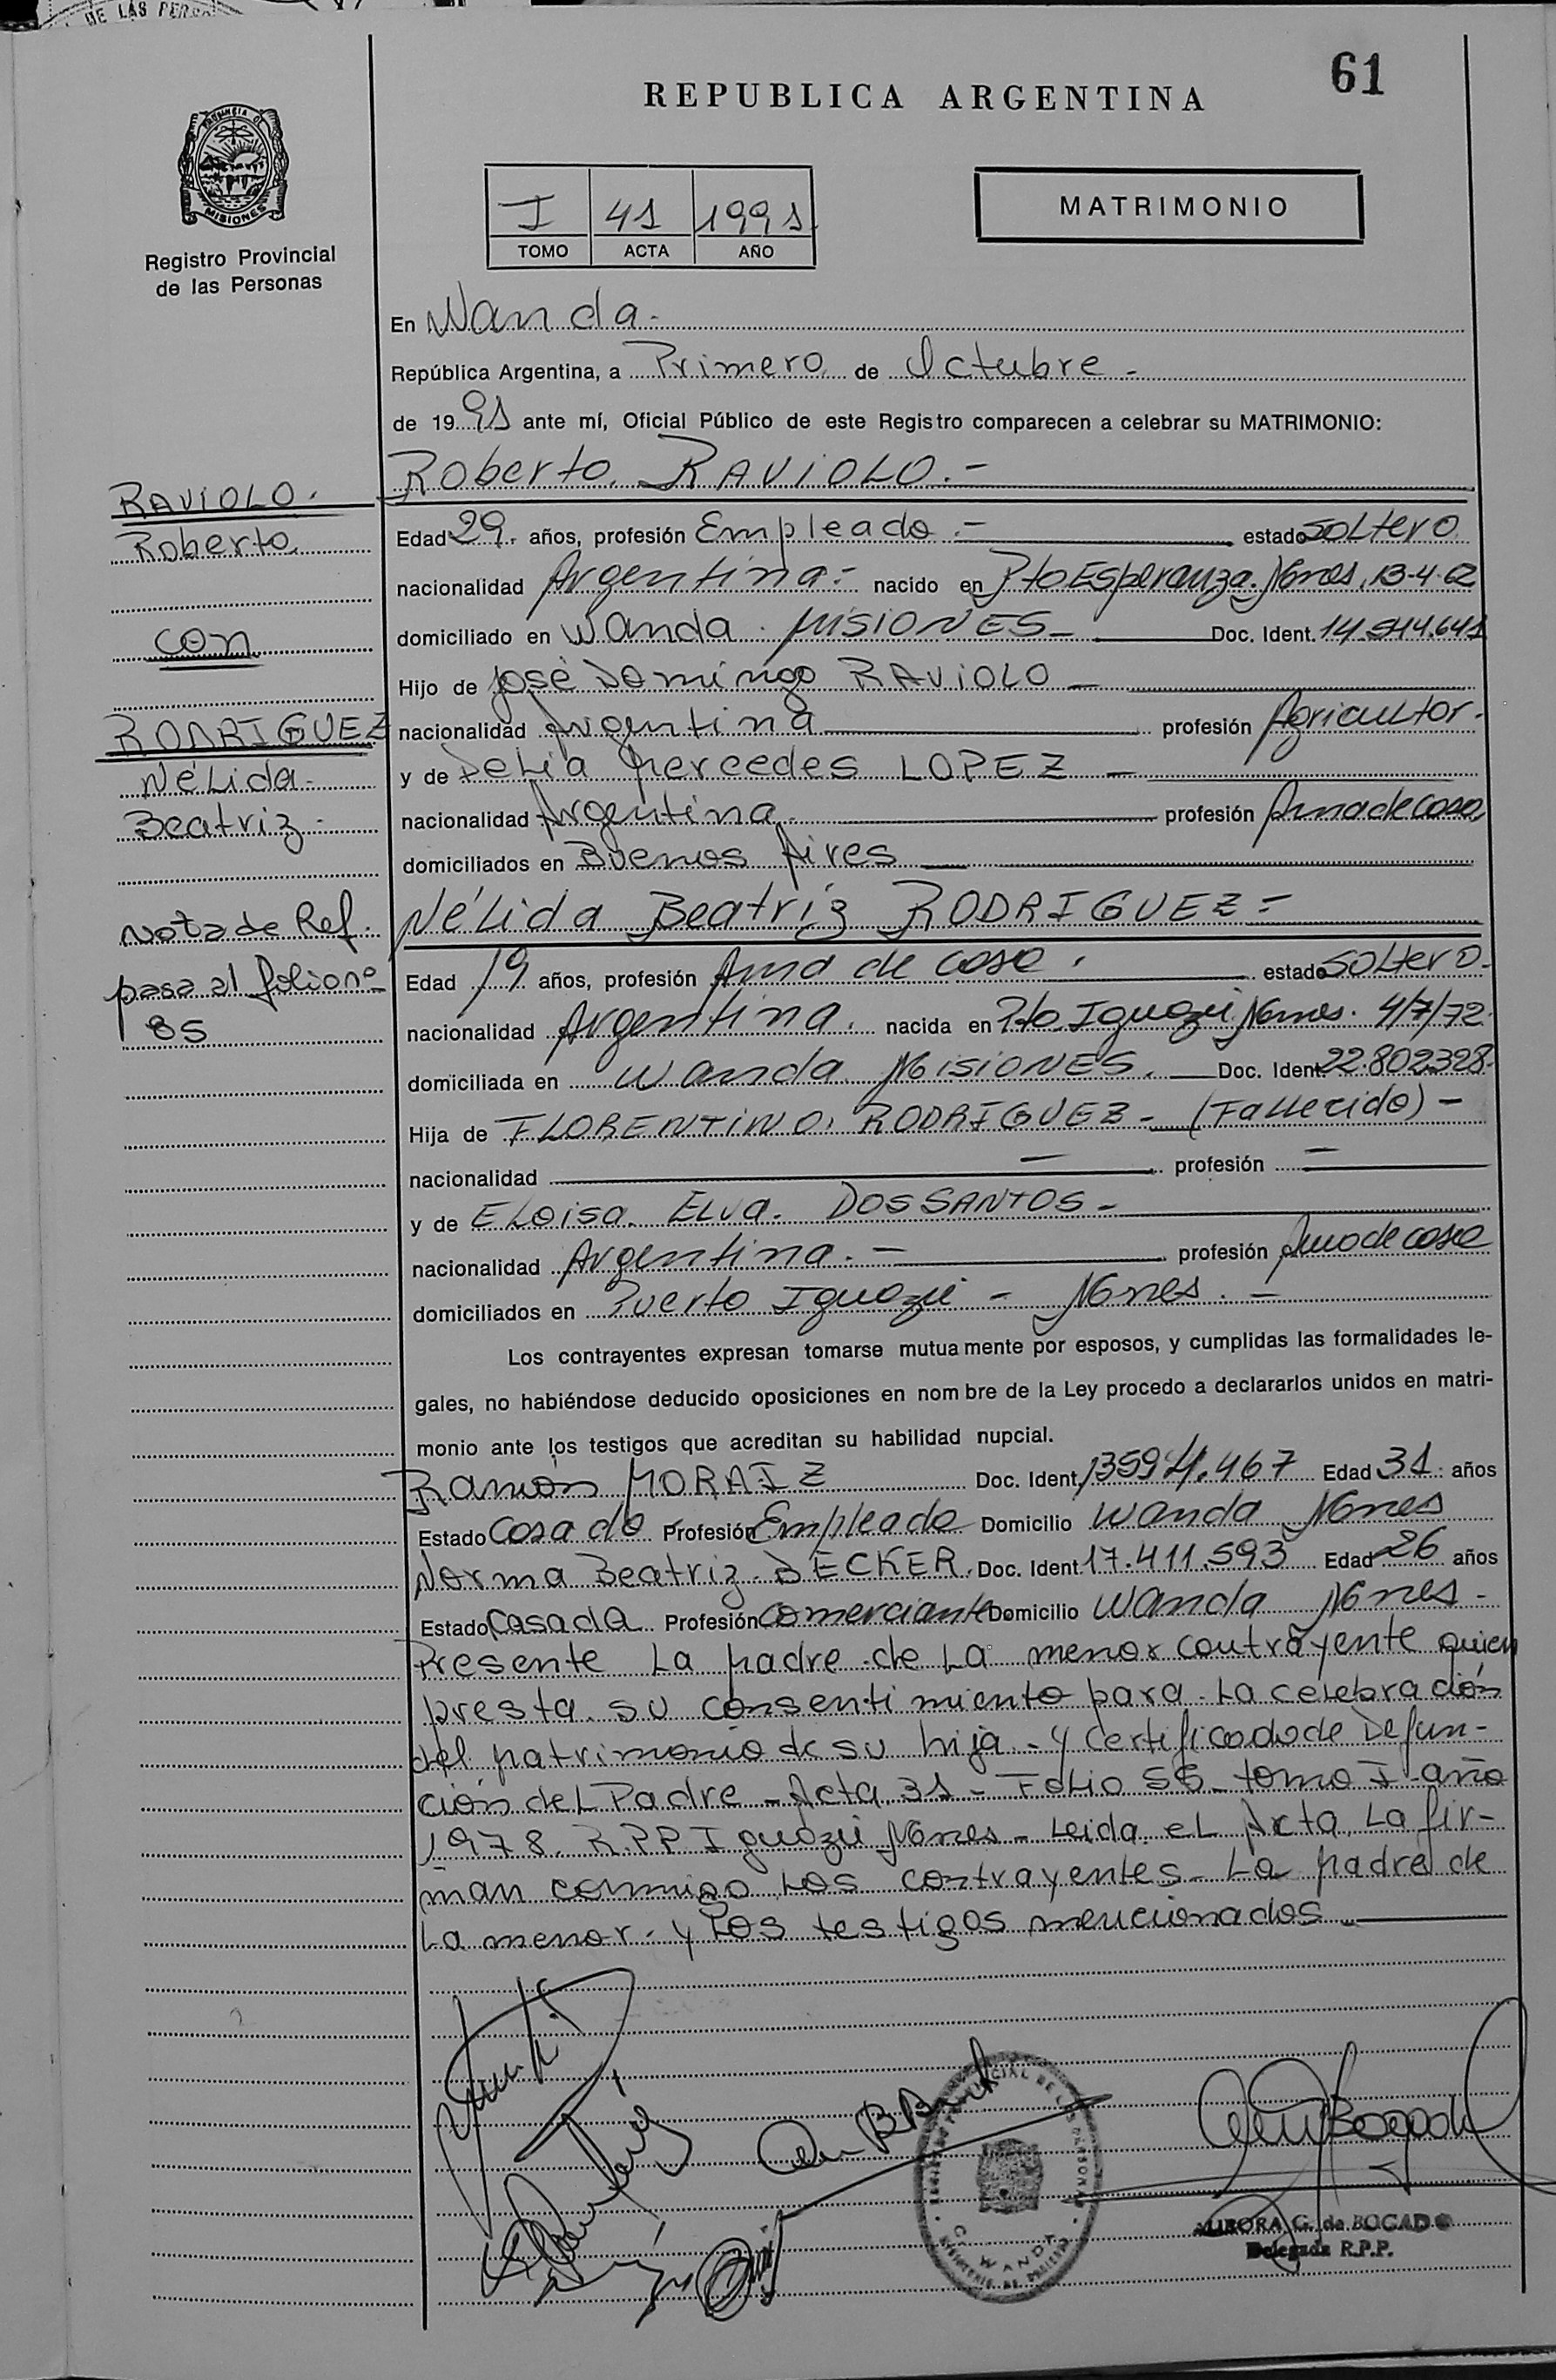 DE LAS PERSO
61
REPUBLICA ARGENTINA
PROVINCIA DE
MISIONES
Registro Provincial
de las Personas
I 41 1991
TOMO ACTA AÑO
MATRIMONIO
En Wanda.-
República Argentina, a Primero de Octubre -
de 1991 ante mí, Oficial Público de este Registro comparecen a celebrar su MATRIMONIO:
Roberto RAVIOLO.-
RAVIOLO.
Roberto
con
RODRIGUEZ
Nélida-
Beatriz-
Nota de Ref.
pasa al folio nº
85
Edad 29. años, profesión Empleado.- estado soltero
nacionalidad Argentina.- nacido en Pto Esperanza. Mnes. 13-4-62
domiciliado en Wanda. MISIONES- Doc. Ident. 14.514.641
Hijo de José Domingo RAVIOLO -
nacionalidad Argentina profesión Agricultor.
y de Delia Mercedes LOPEZ -
nacionalidad Argentina. profesión Ama de casa
domiciliados en Buenos Aires
Nélida Beatriz RODRIGUEZ=
Edad 19 años, profesión Ama de casa. estado soltero-
nacionalidad Argentina. nacida en Pto. Iguazú Mnes. 4/7/72
domiciliada en Wanda MISIONES. Doc. Ident. 22.802328
Hija de FLORENTINO. RODRIGUEZ- (Fallecido) -
nacionalidad - profesión -
y de Eloisa. Elva. DOS SANTOS -
nacionalidad Argentina.- profesión Ama de casa
domiciliados en Puerto Iguazú - Mnes. -
Los contrayentes expresan tomarse mutuamente por esposos, y cumplidas las formalidades le-
gales, no habiéndose deducido oposiciones en nombre de la Ley procedo a declararlos unidos en matri-
monio ante los testigos que acreditan su habilidad nupcial.
Ramón MORAIZ Doc. Ident. 13594.467 Edad 31 años
Estado Casado Profesión Empleado Domicilio Wanda Mnes
Norma Beatriz. BECKER. Doc. Ident. 17.411.593 Edad 26 años
Estado Casada Profesión Comerciante Domicilio Wanda Mnes-
Presente la Madre de la menor contrayente quien
presta su consentimiento para la celebración
del Matrimonio de su hija.- y certificado de Defun-
ción del Padre - Acta 31 - Folio 56 - tomo I año
1978. R.P.P Iguazú Mnes - Leida el Acta, la fir-
man conmigo los contrayentes- La Madre de
la menor. y los testigos mencionados -
REGISTRO PROVINCIAL DE LAS PERSONAS
WANDA
AURORA G. de BOGADO
Delegada R.P.P.